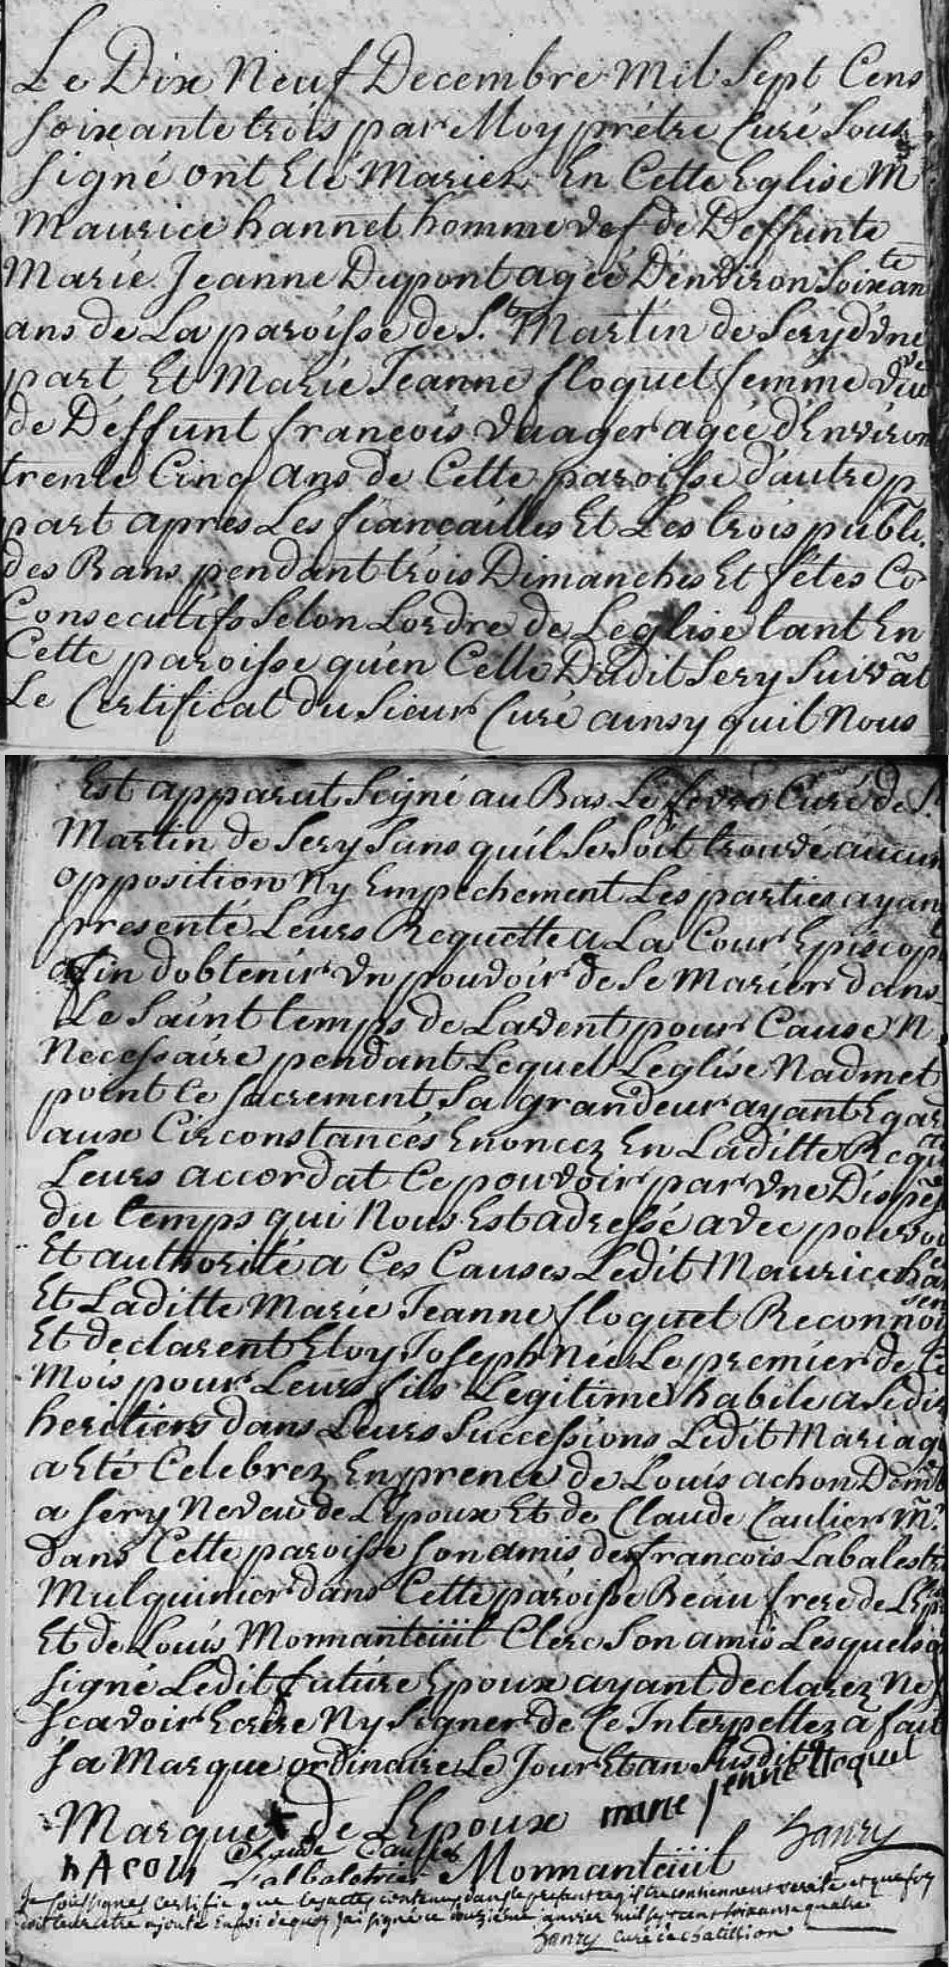 Le Dix Neuf Decembre Mil Sept Cens
soixante trois par Moy prétre Curé Sous
signé ont Eté Mariez En Cette Eglise M
Maurice hannet homme vef de Deffunte
Marie Jeanne Dupont agée D'environ Soixante
ans de La paroisse de St Martin de Sery d'vne
part Et Marie Jeanne floquet femme veuve
de Deffunt francois vuager agée d'Environ
trente Cinq ans de Cette paroisse d'autre p
part apres Les fiancailles Et Les trois publi.
des Bans pendant trois Dimanches Et fétes Co
Consecutifs Selon Lordre de Leglise tant En
Cette paroisse qu'en Celle Dudit Sery Suivãt
Le Certificat du Sieur Curé ainsy quil Nous
Est apparut Signé au Bas Le fevre Curé de St
Martin de Sery Sans quil Se Soit trouvé aucun
opposition Ny Empechement Les parties ayant
presenté Leurs Requette a La Cour Episcop
afin dobtenir vn pouvoir de Se Marier dans
Le Saint temps de Lavent pour Cause N
Necessaire pendant Lequel Leglise Nadmet
point Ce Sacrement Sa grandeur ayant Egard
aux Circonstances Enoncez En Laditte Requ
Leurs accordat Ce pouvoir par vne Dispẽ
du temps qui Nous Est adressé avec pouvoi
Et authorité a Ces Causes Ledit Maurice ha
Et Laditte Marie Jeanne floquet Reconnoissent
Et declarent Eloy Joseph Née Le premier de Ce
Mois pour Leurs fils Legitime habile a Se dir
heritiers dans Leurs Successions Ledit Mariage
a Eté Celebrez En prence de Louis achon Demt
a Sery Neveu de L'Epoux Et de Claude Caulier M.
dans Cette paroisse Son amis de francois Labalestr
Mulquinier dans Cette paroisse Beau frere de L'Ep
Et de Louis Monnanteüil Clerc Son amis Lesquels
Signé Ledit future Epoux ayant declarez Ne
Scavoir Ecrire Ny Signer de Ce Interpellez a fait
Sa Marque ordinaire Le Jour Et an Susdit
marie jenne floquel
Marque + de L'Epoux
hanry
Claude Caulier
hACoW
Labalotrier Monnanteüil
Je soussignez Certifie que les actes contenus dans le present registre contiennent verité et que foy
doit leur etre ajouté en foi de quoy j'ai signé ce douzième janvier mil sept cent soixante quatre
hanry curé de chatillion